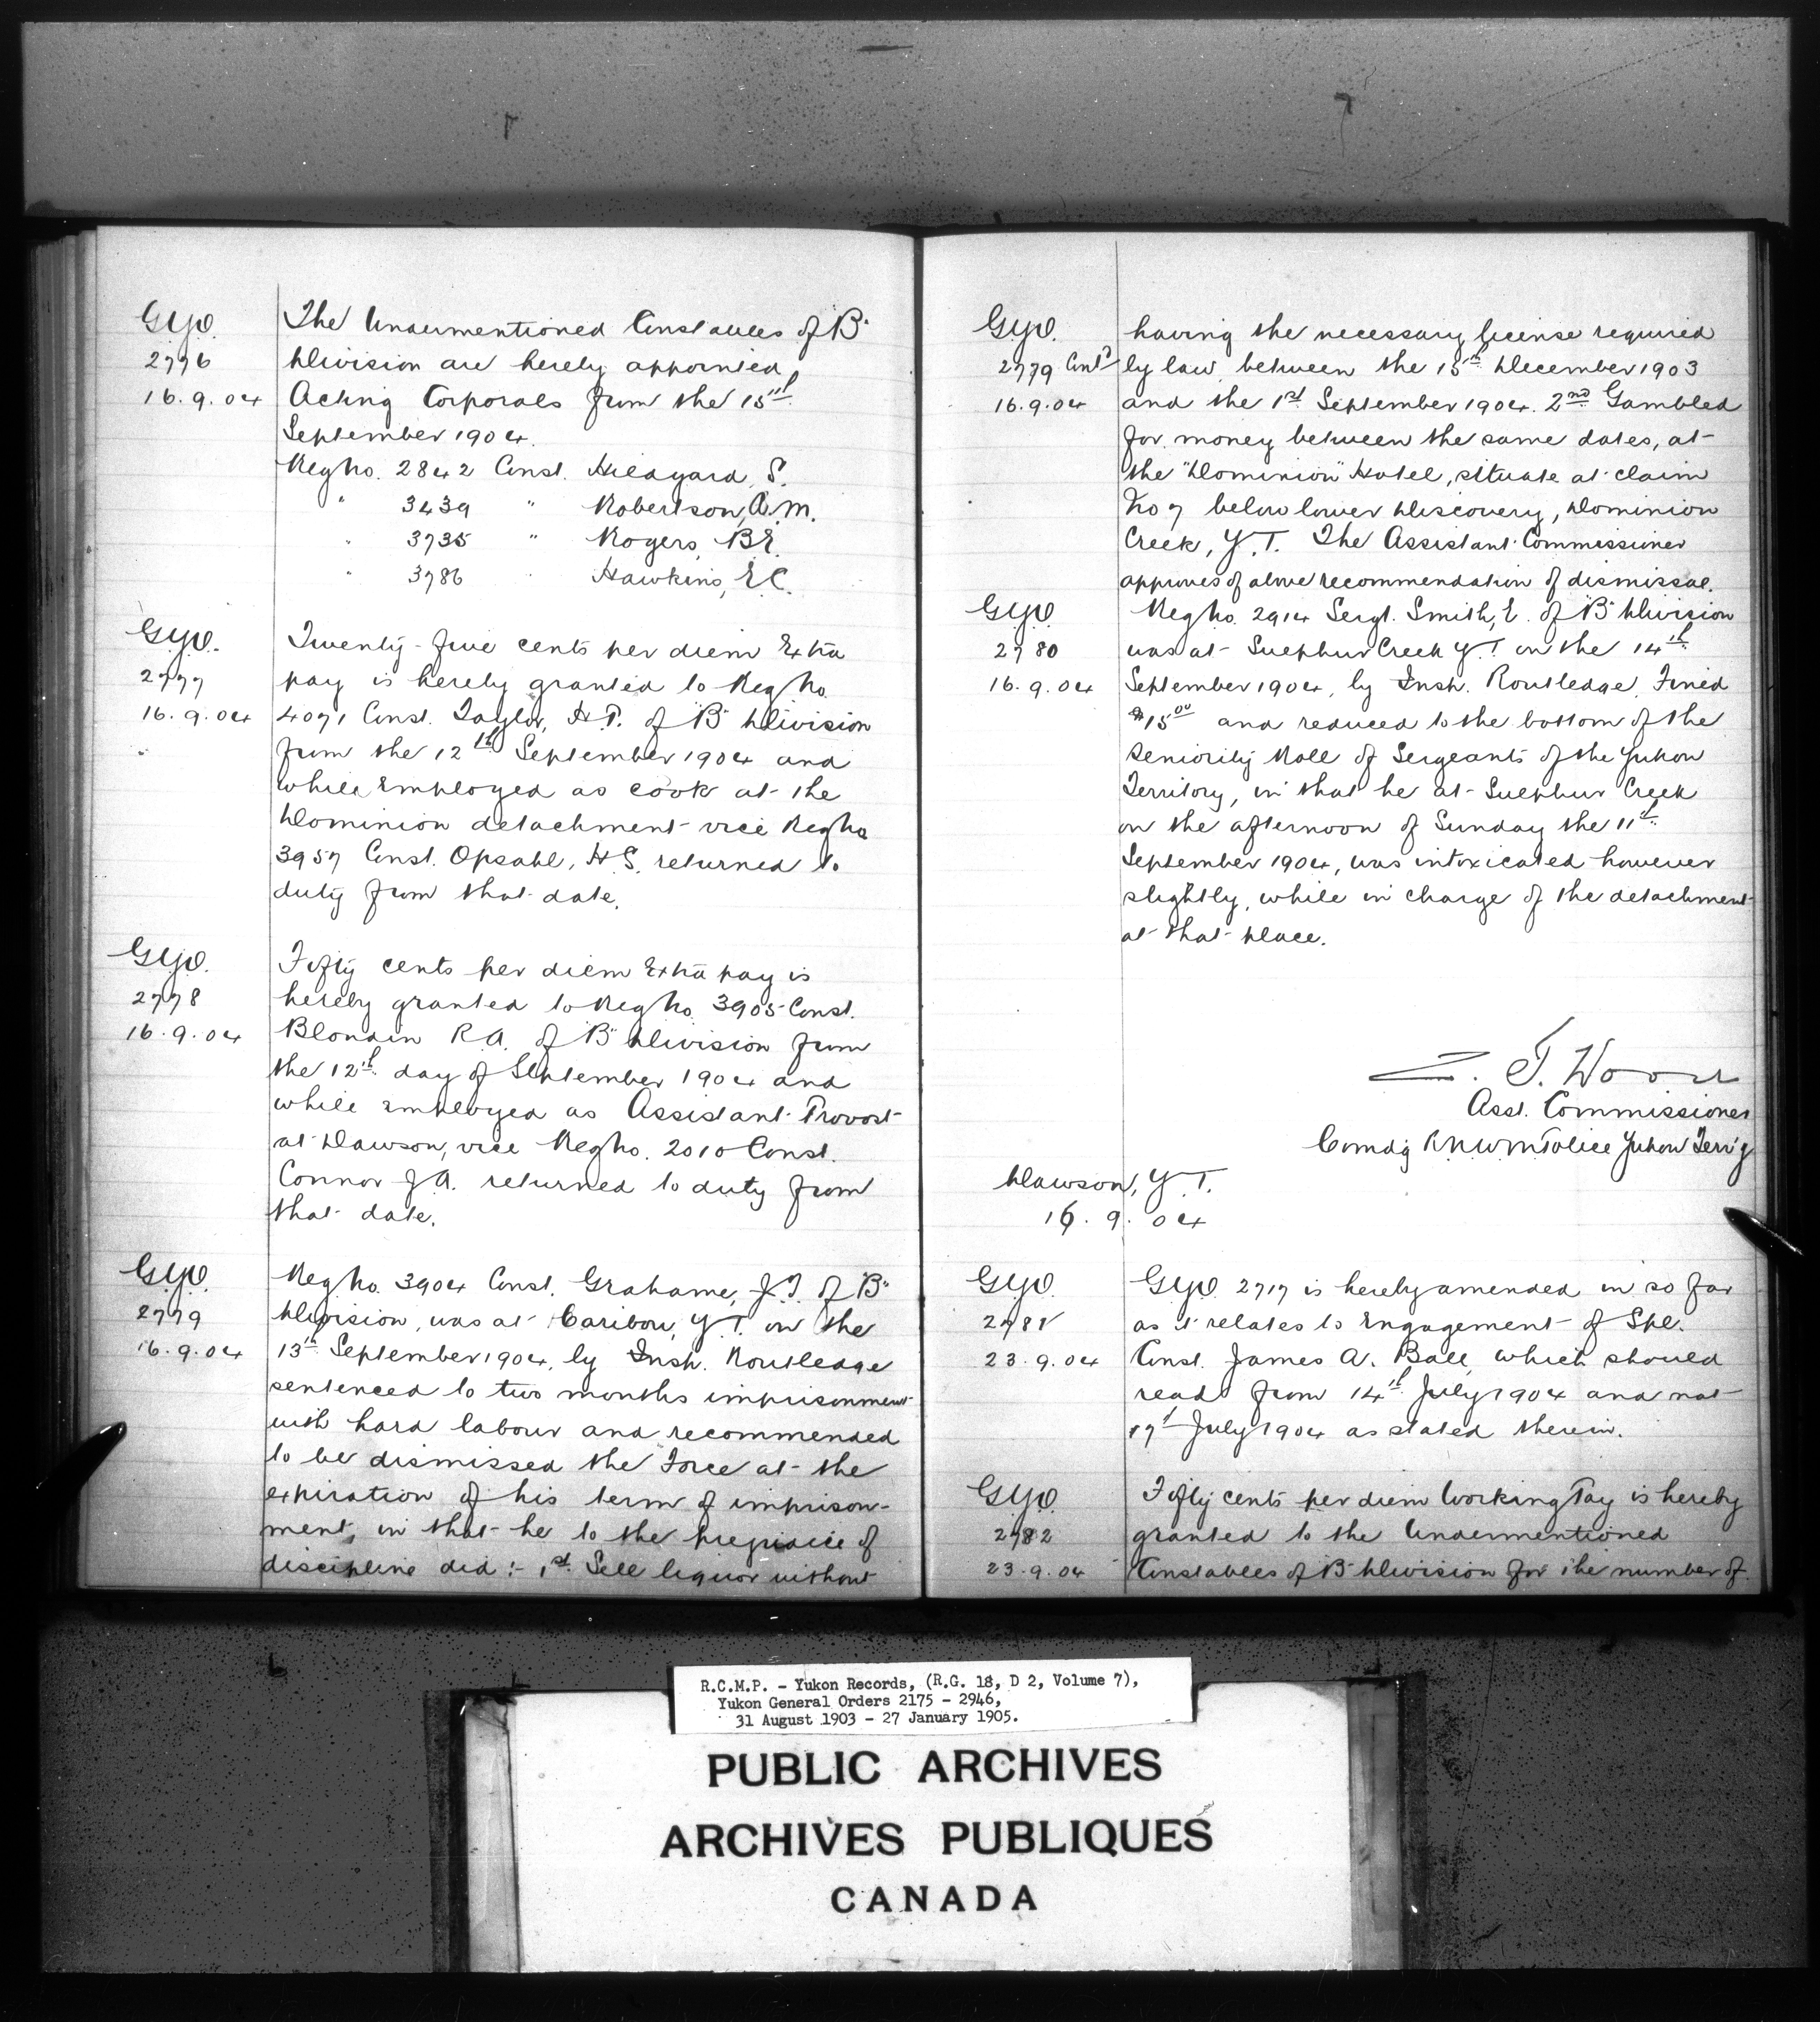 G.Y.O.
2776
16.9.04
The Undermentioned Constables of "B"
Division are hereby appointed
Acting Corporals from the 15th
September 1904.
Reg No. 2842 Const. Hildyard, S.
" 3439 " Robertson, A.M.
" 3735 " Rogers, B.E.
" 3786 " Hawkins, E.C.
G.Y.O.
2777
16.9.04
Twenty-five cents per diem Extra
pay is hereby granted to Reg No
4071 Const. Taylor, H.P. of "B" Division
from the 12th September 1904 and
while Employed as cook at the
Dominion detachment vice Reg No
3957 Const. Opsahl, H.S. returned to
duty from that date.
G.Y.O.
2778
16.9.04
Fifty cents per diem Extra pay is
hereby granted to Reg No. 3905 Const.
Blondin R.A. of "B" Division from
the 12th day of September 1904 and
while Employed as Assistant Provost
at Dawson, vice Reg No. 2010 Const.
Connor J.A. returned to duty from
that date.
G.Y.O.
2779
16.9.04
Reg No. 3904 Const. Grahame, J.T. of "B"
Division, was at Caribou, Y.T. on the
13th September 1904, by Insp. Routledge
sentenced to two months imprisonment
with hard labour and recommended
to be dismissed the Force at the
expiration of his term of imprison-
ment, in that he to the prejudice of
discipline did:- 1st Sell liquor without
G.Y.O.
2779 Contd
16.9.04
having the necessary license required
by law between the 15th December 1903
and the 1st September 1904. 2nd Gambled
for money between the same dates, at
the "Dominion" Hotel, situate at claim
No 7 below lower Discovery, Dominion
Creek, Y.T. The Assistant Commissioner
approves of above recommendation of dismissal.
G.Y.O.
2780
16.9.04
Reg No. 2914 Sergt. Smith, E. of "B" Division
was at Sulphur Creek Y.T. on the 14th
September 1904, by Insp. Routledge, Fined
$15.00 and reduced to the bottom of the
Seniority Roll of Sergeants of the Yukon
Territory, in that he at Sulphur Creek
on the afternoon of Sunday the 11th
September 1904, was intoxicated however
slightly, while in charge of the detachment
at that place.
Z. T. Wood
Asst. Commissioner
Comdg R.N.W.M Police Yukon Terr'y
Dawson, Y.T.
16.9.04
G.Y.O.
2781
23.9.04
G.Y.O. 2717 is hereby amended in so far
as it relates to Engagement of Spl.
Const. James A. Ball, which should
read from 14th July 1904 and not
17th July 1904 as stated therein.
G.Y.O.
2782
23.9.04
Fifty cents per diem Working Pay is hereby
granted to the Undermentioned
Constables of "B" Division for the number of
R.C.M.P. - Yukon Records, (R.G. 18, D 2, Volume 7),
Yukon General Orders 2175 - 2946,
31 August 1903 - 27 January 1905.
PUBLIC ARCHIVES
ARCHIVES PUBLIQUES
CANADA